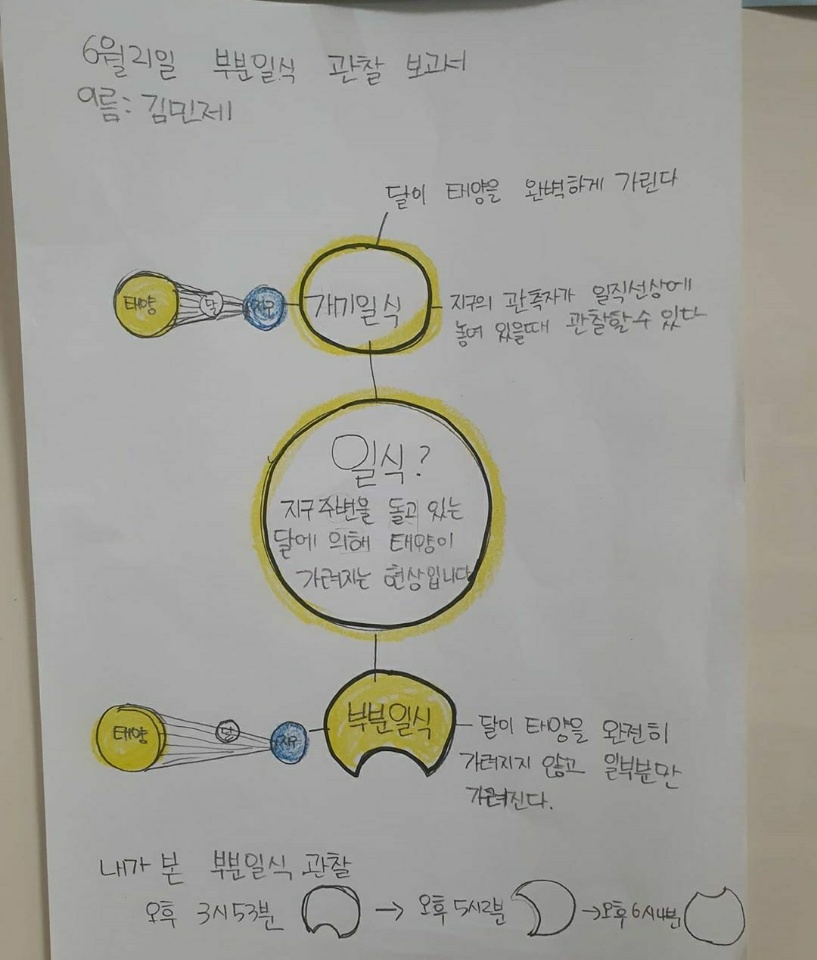 6월21일 부분일식 관찰 보고서
이름: 김민제
달이 태양을 완벽하게 가린다
태양
달
지구
개기일식
지구의 관측자가 일직선상에
놓여 있을때 관찰할 수 있다
일식?
지구 주변을 돌고 있는
달에 의해 태양이
가려지는 현상입니다
태양
달
지구
부분일식
달이 태양을 완전히
가려지지 않고 일부분만
가려진다.
내가 본 부분일식 관찰
오후 3시53분 → 오후 5시2분 → 오후 6시4분